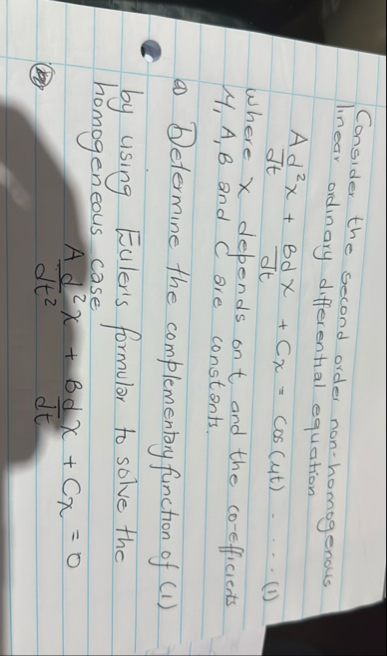 Consider the second order non-homogenous
linear ordinary differential equation
A d²x/dt + B dx/dt + Cx = cos(μt) . . . . (1)
where x depends on t and the co-efficients
μ, A, B and C are constants.
a Determine the complementary function of (1)
by using Euler's formular to solve the
homogeneous case
A d²x/dt² + B dx/dt + Cx = 0